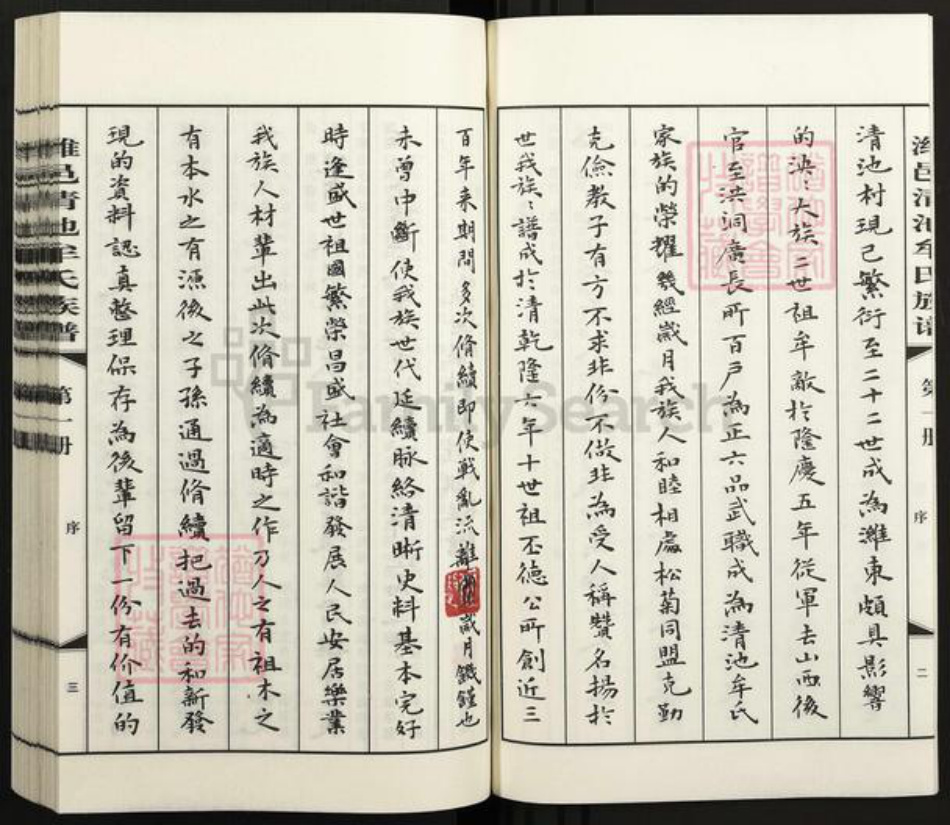 濰邑清池牟氏族譜
第一册
序
二
清池村現已繁衍至二十二世成為濰東頗具影響
的泱〻大族二世祖牟敵扵隆慶五年從軍去山西後
官至洪洞廣長所百戶為正六品武職成為清池牟氏
家族的榮耀幾經歲月我族人和睦相處松菊同盟克勤
克儉教子有方不求非份不做非為受人稱贊名揚扵
世我族〻譜成扵清乾隆六年十世祖丕德公所創近三
百年来期間多次脩續即使戰亂流離歲月饑饉也
未曾中斷使我族世代延續脉絡清晰史料基本完好
時逢盛世祖國繁榮昌盛社會和諧發展人民安居樂業
我族人材輩出此次脩續為適時之作乃人之有祖木之
有本水之有源後之子孫通過脩續把過去的和新發
現的資料認真整理保存為後輩留下一份有价值的
濰邑清池牟氏族譜
第一册
序
三
FamilySearch